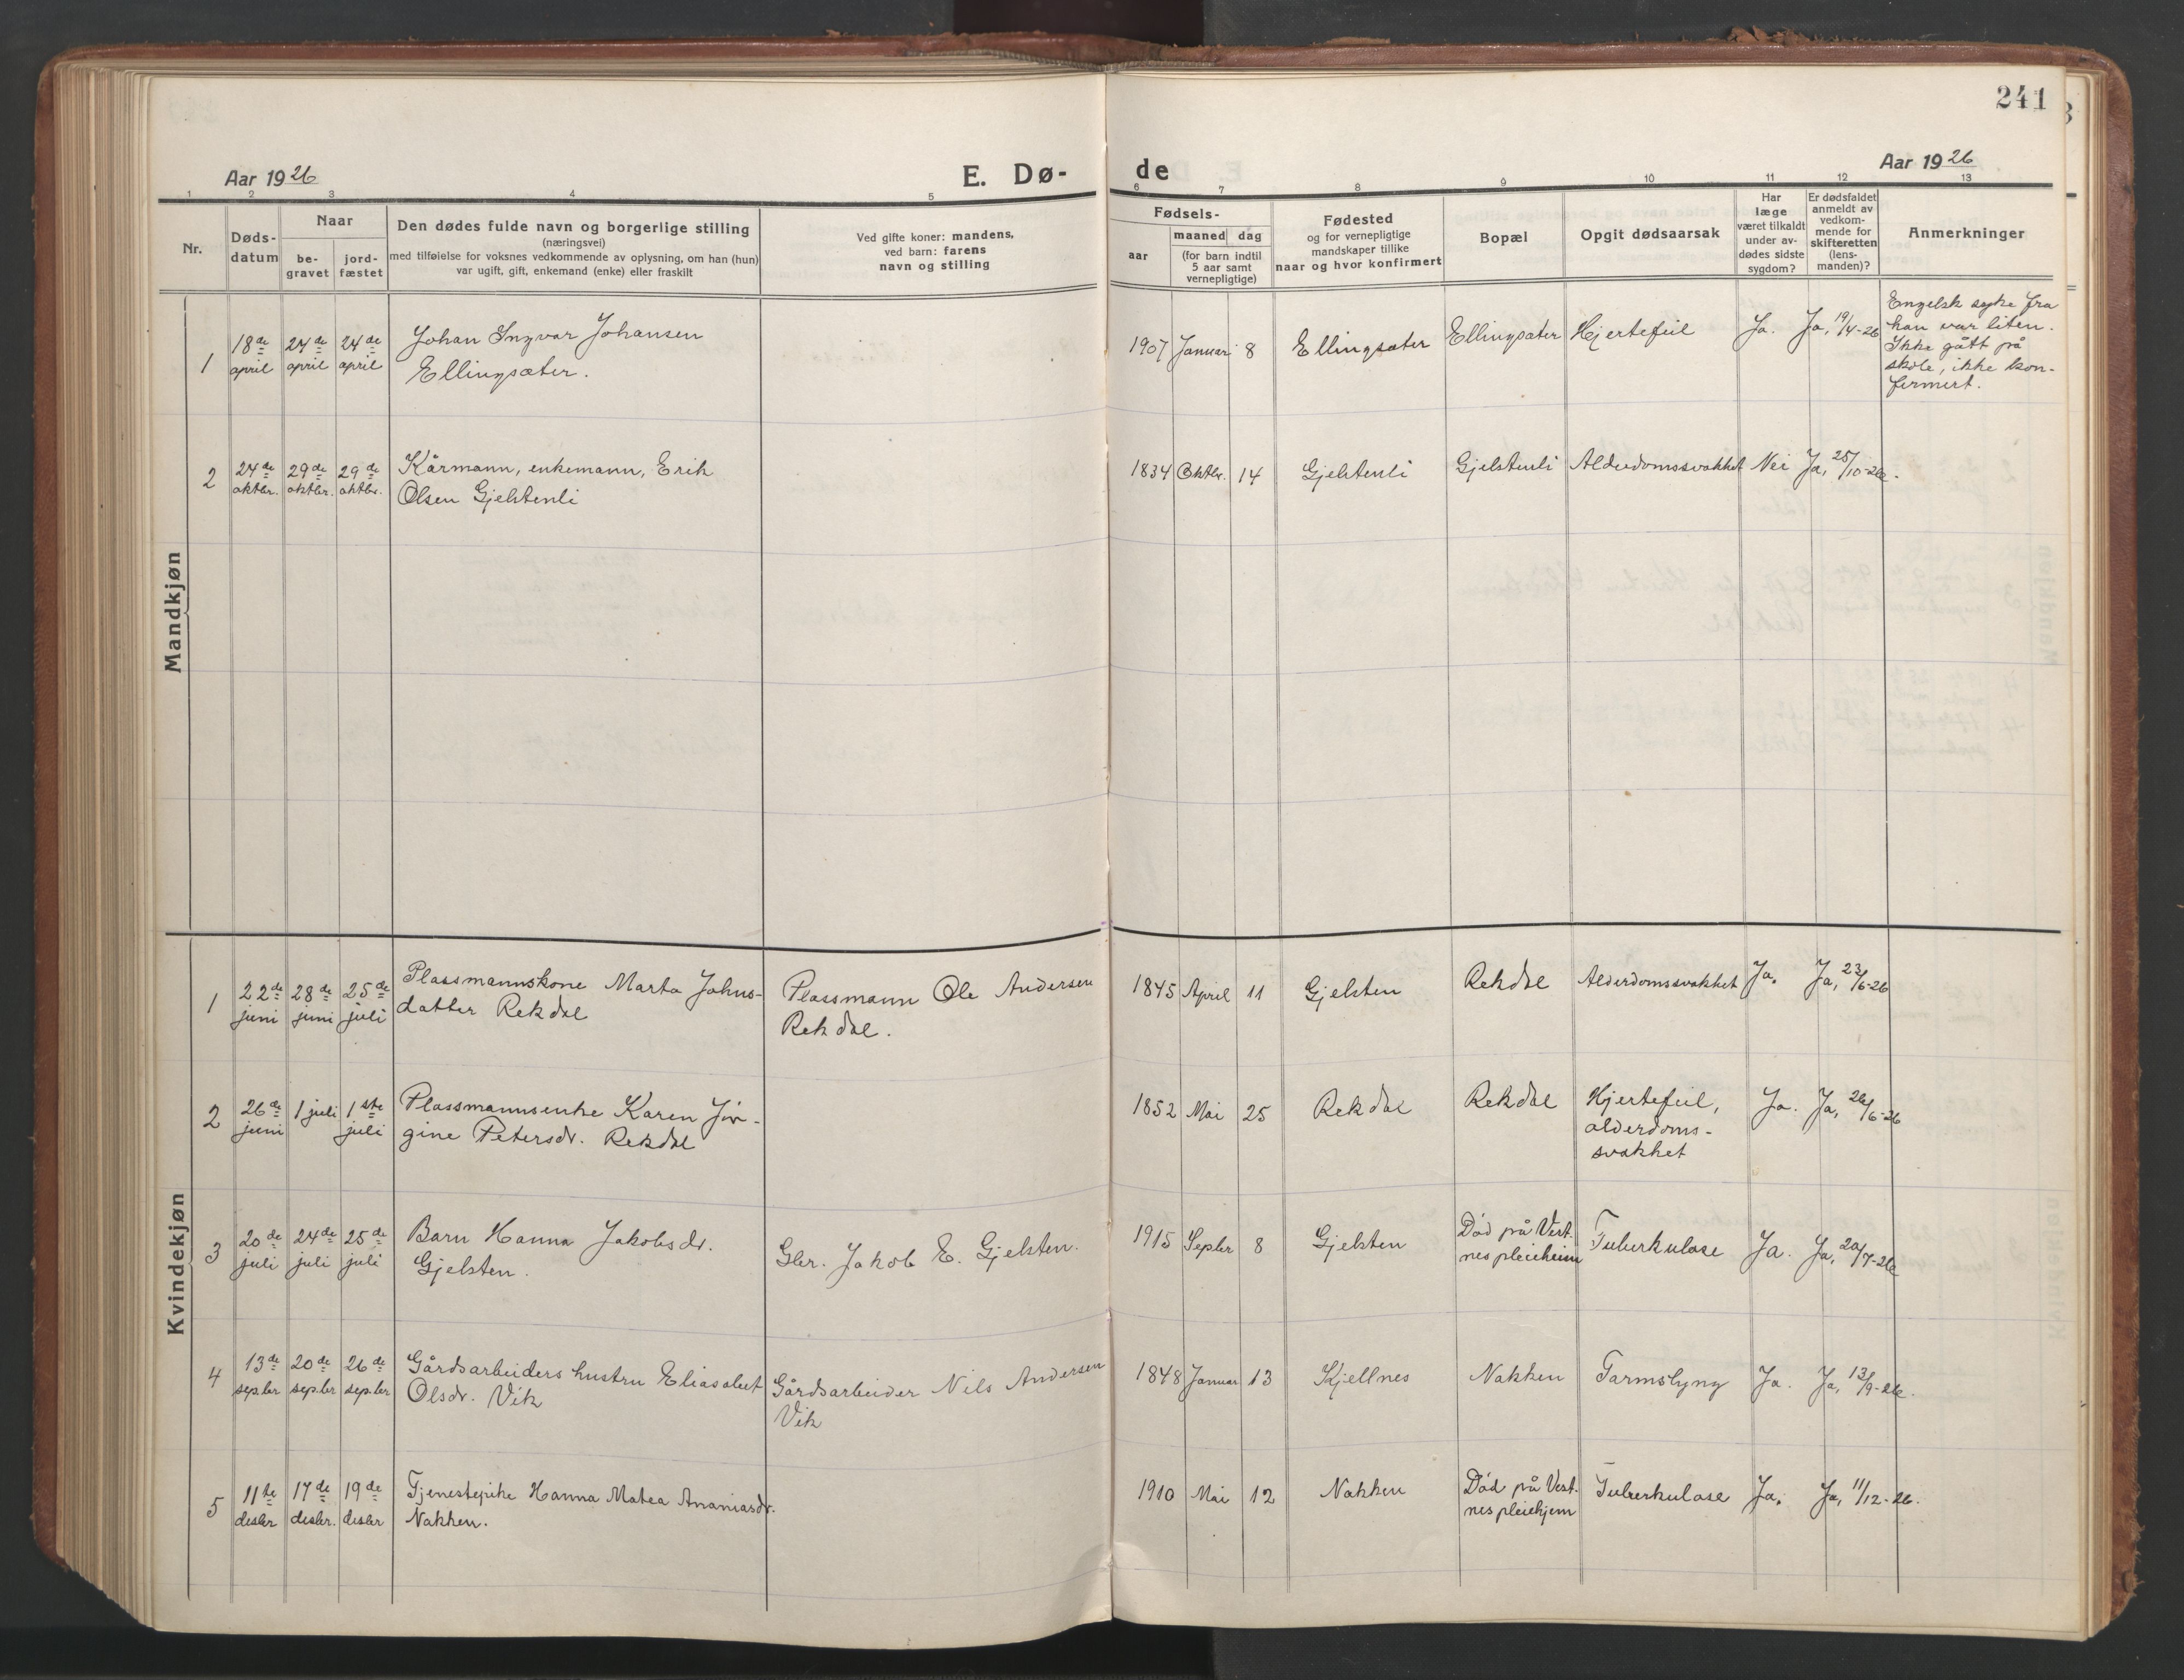 241
Aar 1926
E. Dø-
de
Aar 1926
1 2 3 4 5
6 7 8 9 10 11 12 13
Nr.
Døds-
datum
Naar
be-
gravet
jord-
fæstet
Den dødes fulde navn og borgerlige stilling
(næringsvei)
med tilføielse for voksnes vedkommende av oplysning, om han (hun)
var ugift, gift, enkemand (enke) eller fraskilt
Ved gifte koner: mandens,
ved barn: farens
navn og stilling
Fødsels-
aar
maaned dag
(for barn indtil
5 aar samt
vernepligtige)
Fødested
og for vernepligtige
mandskaper tillike
naar og hvor konfirmert
Bopæl
Opgit dødsaarsak
Har
læge
været tilkaldt
under av-
dødes sidste
sygdom?
Er dødsfaldet
anmeldt av
vedkom-
mende for
skifteretten
(lens-
manden)?
Anmerkninger
Mandkjøn
1
18de
april
24de
april
24de
april
Johan Ingvar Johansen
Ellingsæter.
1907 Januar 8
Ellingsæter
Ellingsæter
Hjertefeil
Ja.
Ja, 19/4-26
Engelsk syke fra
han var liten.
Ikke gått på
skole, ikke kon-
fermert.
2
24de
oktbr.
29de
oktbr.
29de
oktbr.
Kårmann, enkemann, Erik
Olsen Gjelstenli
1834 Oktbr. 14
Gjelstenli
Gjelstenli
Alderdomssvakhet
Nei
Ja, 25/10-26.
Kvindekjøn
1
22de
juni
28de
juni
25de
juli
Plassmannskone Marta Johns-
datter Rekdal
Plassmann Ole Andersen
Rekdal.
1845 April 11
Gjelsten
Rekdal
Alderdomssvakhet
Ja.
Ja, 23/6-26
2
26de
juni
1 juli
1ste
juli
Plassmannsenke Karen Jør-
gine Petersdr. Rekdal
1852 Mai 25
Rekdal
Rekdal
Hjertefeil,
alderdoms-
svakhet
Ja.
Ja, 26/6-26
3
20de
juli
24de
juli
25de
juli
Barn Hanna Jakobsdr.
Gjelsten.
Gbr. Jakob E. Gjelsten.
1915 Septbr 8
Gjelsten
Död på Vest-
nes pleieheim
Tuberkulose
Ja.
Ja, 20/7-26
4
13de
sep.br
20de
sep.br
26de
sep.br
Gårdsarbeiders hustru Eliasabet
Olsdr. Vik
Gårdsarbeider Nils Andersen
Vik
1848 Januar 13
Kjellnes
Nakken
Tarmslyng
Ja.
Ja, 13/9-26.
5
11te
desbr
17de
desbr.
19de
desbr
Tjenestepike Hanna Matea Ananiasdr.
Nakken.
1910 Mai 12
Nakken
Död på Vest-
nes pleiehjem
Tuberkulose
Ja.
Ja, 11/12-26.